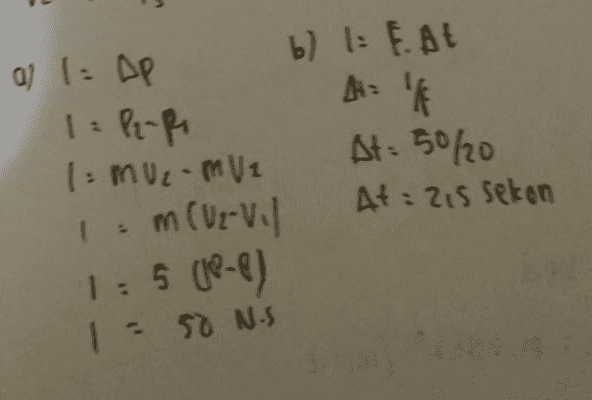 a) I = Δp
I = P₂-P₁
I = mv₂ - mv₁
I = m(v₂-v₁)
I = 5 (10-0)
I = 50 N.s
b) I = F. Δt
Δt = I/F
Δt = 50/20
Δt = 2,5 sekon